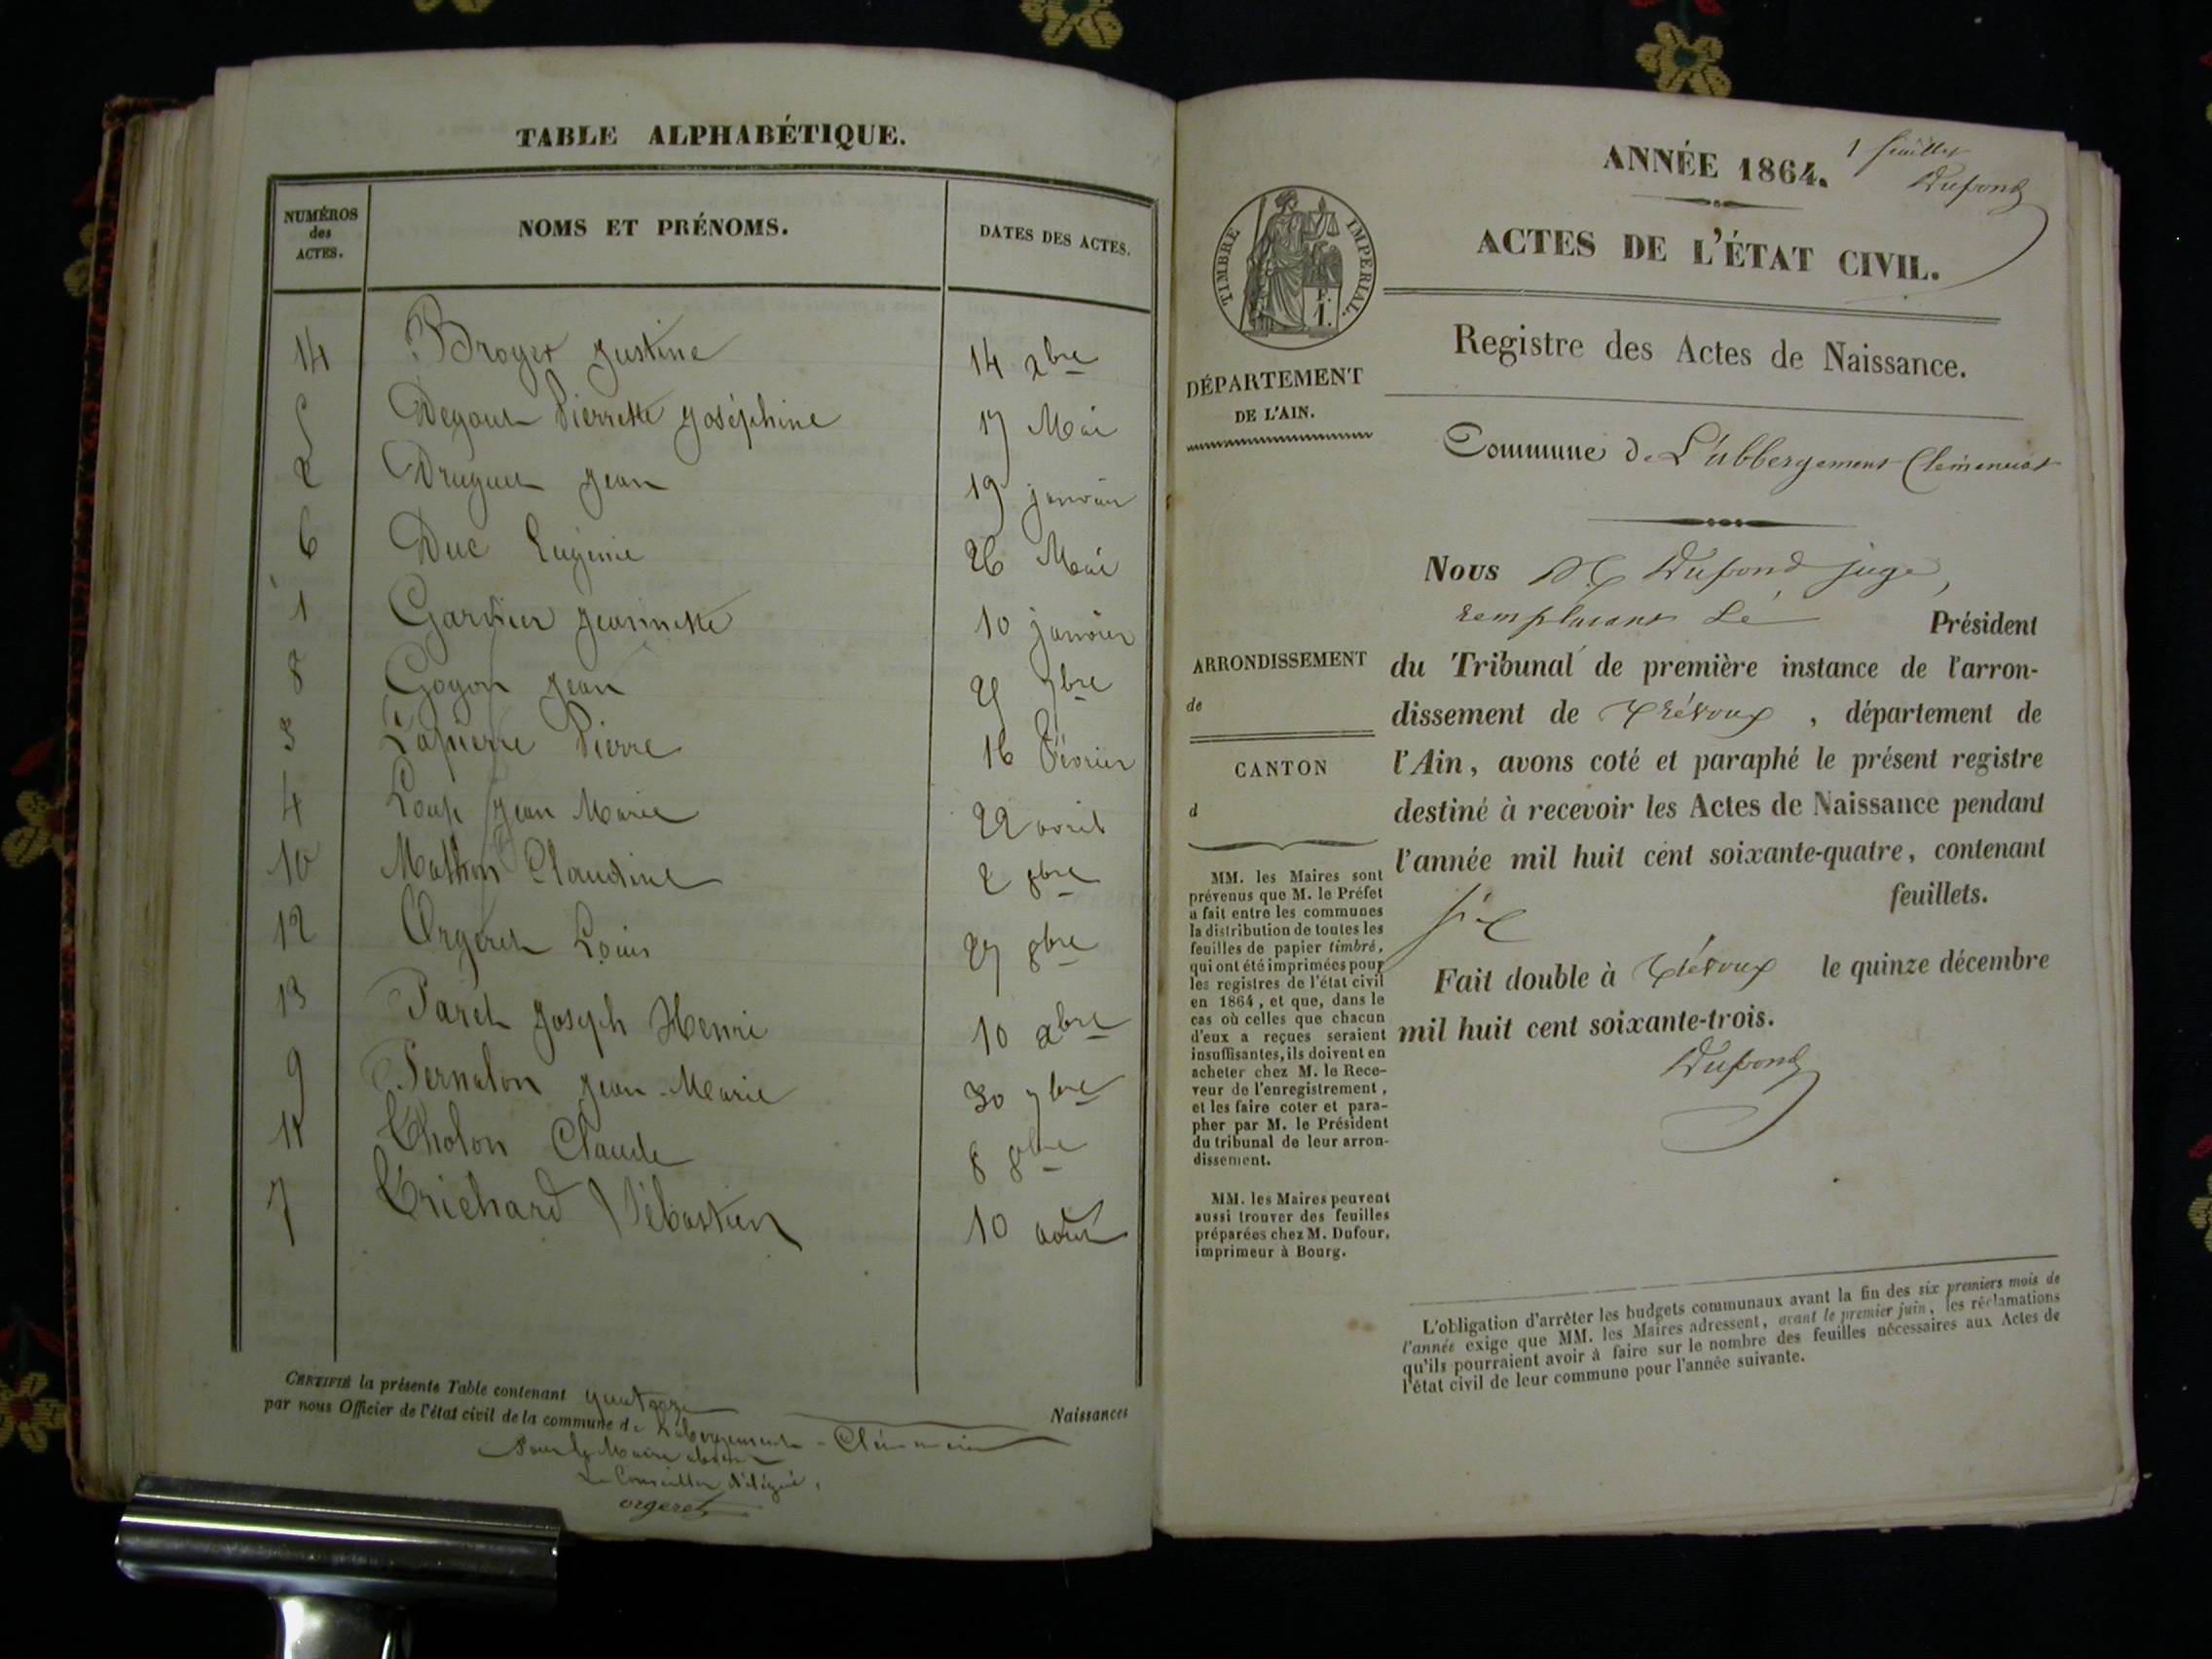 TABLE ALPHABÉTIQUE.
NUMÉROS des ACTES. NOMS ET PRÉNOMS. DATES DES ACTES.
14 Broyer Justine 14 xbre
5 Degout Pierrette Joséphine 17 Mai
2 Druguet Jean 19 janvier
6 Duc Eugénie 26 Mai
1 Garnier Jeannette 10 janvier
8 Goyon Jean 29 7bre
3 Lapierre Pierre 16 Février
4 Loup Jean Marie 22 avril
10 Mathon Claudine 2 8bre
12 Orgeret Louis 27 8bre
13 Paret Joseph Henri 10 xbre
9 Pernaton Jean-Marie 30 7bre
11 Tholon Claude 8 8bre
7 Trichard Sébastien 10 août
CERTIFIÉ la présente Table contenant quatorze Naissances
par nous Officier de l'état civil de la commune de L'abergement-Clémencia
Pour le Maire absent
Le Conseiller Délégué,
orgeret
1 feuillet
Dufond
ANNÉE 1864.
ACTES DE L'ÉTAT CIVIL.
TIMBRE IMPERIAL.
F.
1.
Registre des Actes de Naissance.
DÉPARTEMENT
DE L'AIN.
Commune de L'abbergement Clémenciat
Nous Dufond juge,
remplaçant Le Président
du Tribunal de première instance de l'arron-
dissement de Trévoux, département de
l'Ain, avons coté et paraphé le présent registre
destiné à recevoir les Actes de Naissance pendant
l'année mil huit cent soixante-quatre, contenant
six feuillets.
Fait double à Trévoux le quinze décembre
mil huit cent soixante-trois.
Dufond
ARRONDISSEMENT
de
CANTON
d
MM. les Maires sont
prévenus que M. le Préfet
a fait entre les communes
la distribution de toutes les
feuilles de papier timbré,
qui ont été imprimées pour
les registres de l'état civil
en 1864, et que, dans le
cas où celles que chacun
d'eux a reçues seraient
insuffisantes, ils doivent en
acheter chez M. le Rece-
veur de l'enregistrement,
et les faire coter et para-
pher par M. le Président
du tribunal de leur arron-
dissement.
MM. les Maires peuvent
aussi trouver des feuilles
préparées chez M. Dufour,
imprimeur à Bourg.
L'obligation d'arrêter les budgets communaux avant la fin des six premiers mois de
l'année exige que MM. les Maires adressent, avant le premier juin, les réclamations
qu'ils pourraient avoir à faire sur le nombre des feuilles nécessaires aux Actes de
l'état civil de leur commune pour l'année suivante.